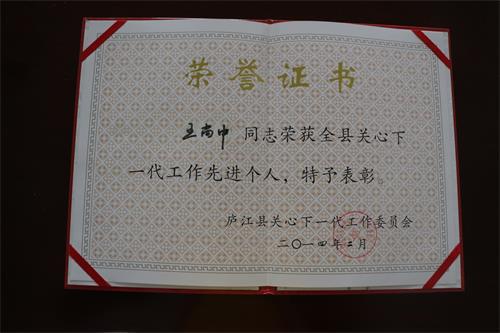 荣誉证书
王尚中 同志荣获全县关心下
一代工作先进个人，特予表彰。
庐江县关心下一代工作委员会
二〇一四年二月